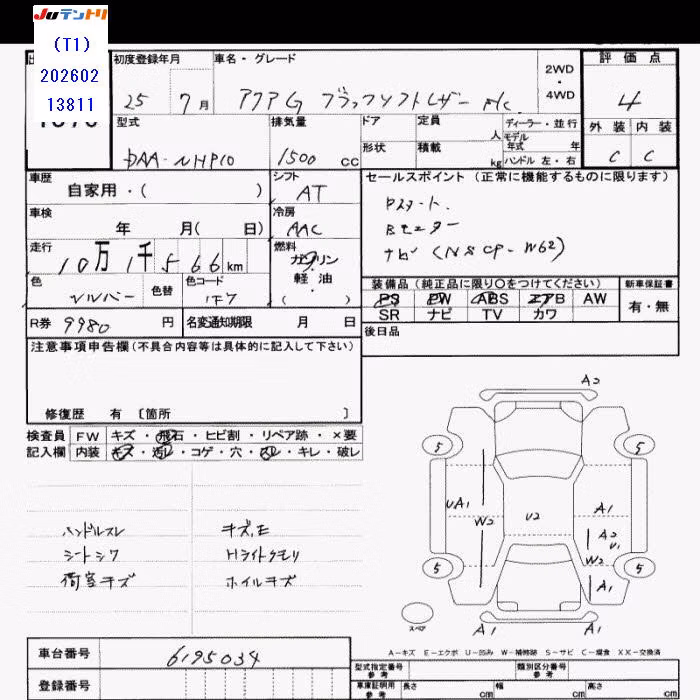 Juテントリ
(T1)
202602
13811
初度登録年月
25 7月
車名・グレード
アクア G ブラックソフトレザー
2WD・4WD
評価点
4
外装 内装
C C
型式
DAA-NHP10
排気量
1500 cc
ドア
形状
定員
人
積載
kg
ディーラー・並行
モデル年式 年
ハンドル 左・右
車歴
自家用・( )
シフト
AT
車検
年 月( 日)
冷房
AAC
走行
10万1千566km
燃料
ガソリン・軽油
( )
色
シルバー
色替
色コード
1F7
R券 9980 円
名変通知期限 月 日
セールスポイント (正常に機能するものに限ります)
Pスタート
Bモニター
ナビ (NSCP-W62)
装備品 (純正品に限り○をつけてください)
PS PW ABS エアB AW
SR ナビ TV カワ
新車保証書
有・無
後日品
注意事項申告欄 (不具合内容等は具体的に記入して下さい)
修復歴 有 〔箇所 〕
検査員記入欄
FW キズ・飛石・ヒビ割・リペア跡・×要
内装 キズ・汚レ・コゲ・穴・スレ・キレ・破レ
ハンドルスレ
シートシワ
荷室キズ
キズ,E
Hライトクモリ
ホイルキズ
A2
5 5
UA1
W2
U2
A1
A2
U1
W2
A1
5 5
スペア
A1 A1
A-キズ E-エクボ U-凹み W-補修跡 S-サビ C-腐食 XX-交換済
車台番号
6195034
登録番号
型式指定番号
参考
類別区分番号
参考
車庫証明用
参考
長さ cm
幅 cm
高さ cm